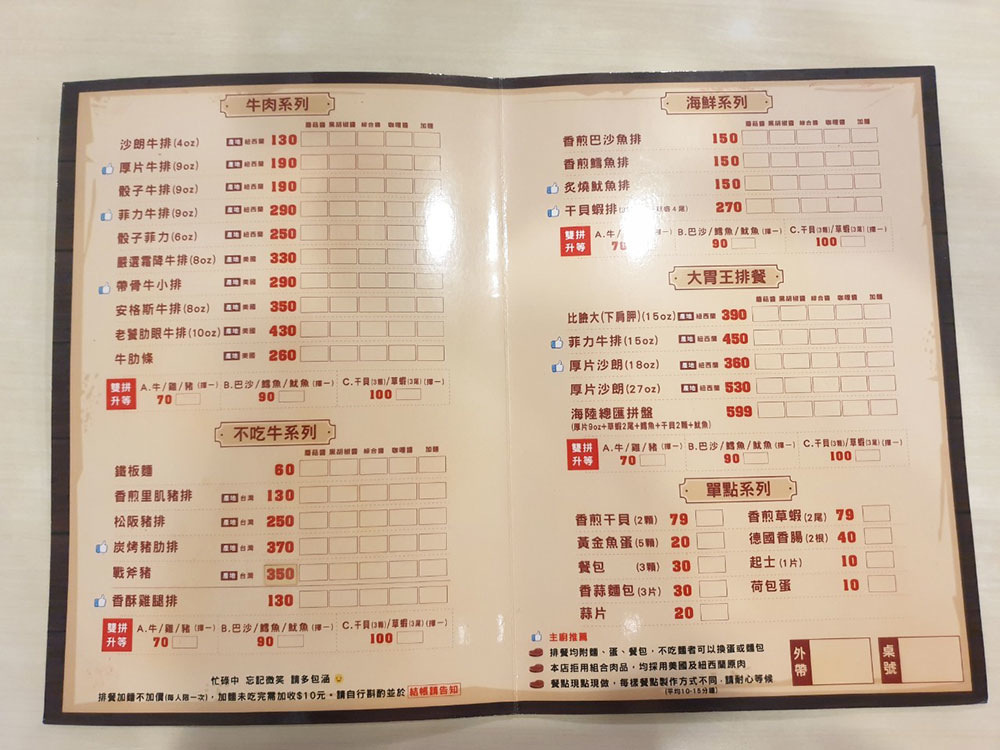 牛肉系列
蘑菇醬 黑胡椒醬 綜合醬 咖哩醬 加麵
沙朗牛排(4oz) 產地 紐西蘭 130
厚片牛排(9oz) 產地 紐西蘭 190
骰子牛排(9oz) 產地 紐西蘭 190
菲力牛排(9oz) 產地 紐西蘭 290
骰子菲力(6oz) 產地 紐西蘭 250
嚴選霜降牛排(8oz) 產地 美國 330
帶骨牛小排 產地 美國 290
安格斯牛排(8oz) 產地 美國 350
老饕肋眼牛排(10oz) 產地 美國 430
牛肋條 產地 美國 260
雙拼升等 A.牛/雞/豬(擇一) B.巴沙/鱈魚/魷魚(擇一) C.干貝(3顆)/草蝦(3尾)(擇一)
70 90 100
不吃牛系列
蘑菇醬 黑胡椒醬 綜合醬 咖哩醬 加麵
鐵板麵 60
香煎里肌豬排 產地 台灣 130
松阪豬排 產地 台灣 250
炭烤豬肋排 產地 台灣 370
戰斧豬 產地 台灣 350
香酥雞腿排 130
雙拼升等 A.牛/雞/豬(擇一) B.巴沙/鱈魚/魷魚(擇一) C.干貝(3顆)/草蝦(3尾)(擇一)
70 90 100
忙碌中 忘記微笑 請多包涵
排餐加麵不加價(每人限一次),加麵未吃完需加收$10元。請自行斟酌並於 結帳請告知
海鮮系列
蘑菇醬 黑胡椒醬 綜合醬 咖哩醬 加麵
香煎巴沙魚排 150
香煎鱈魚排 150
炙燒魷魚排 150
干貝蝦排 4尾) 270
雙拼升等 A.牛/ 擇一) B.巴沙/鱈魚/魷魚(擇一) C.干貝(3顆)/草蝦(3尾)(擇一)
70 90 100
大胃王排餐
蘑菇醬 黑胡椒醬 綜合醬 咖哩醬 加麵
比臉大(下肩胛)(15oz) 產地 紐西蘭 390
菲力牛排(15oz) 產地 紐西蘭 450
厚片沙朗(18oz) 產地 紐西蘭 360
厚片沙朗(27oz) 產地 紐西蘭 530
海陸總匯拼盤 599
(厚片9oz+草蝦2尾+鱈魚+干貝2顆+魷魚)
雙拼升等 A.牛/雞/豬(擇一) B.巴沙/鱈魚/魷魚(擇一) C.干貝(3顆)/草蝦(3尾)(擇一)
70 90 100
單點系列
香煎干貝(2顆) 79 香煎草蝦(2尾) 79
黃金魚蛋(5顆) 20 德國香腸(2根) 40
餐包 (3顆) 30 起士(1片) 10
香蒜麵包(3片) 30 荷包蛋 10
蒜片 20
主廚推薦
排餐均附麵、蛋、餐包,不吃麵者可以換蛋或麵包
本店拒用組合肉品,均採用美國及紐西蘭原肉
餐點現點現做,每樣餐點製作方式不同,請耐心等候
(平均10-15分鐘)
外帶
桌號